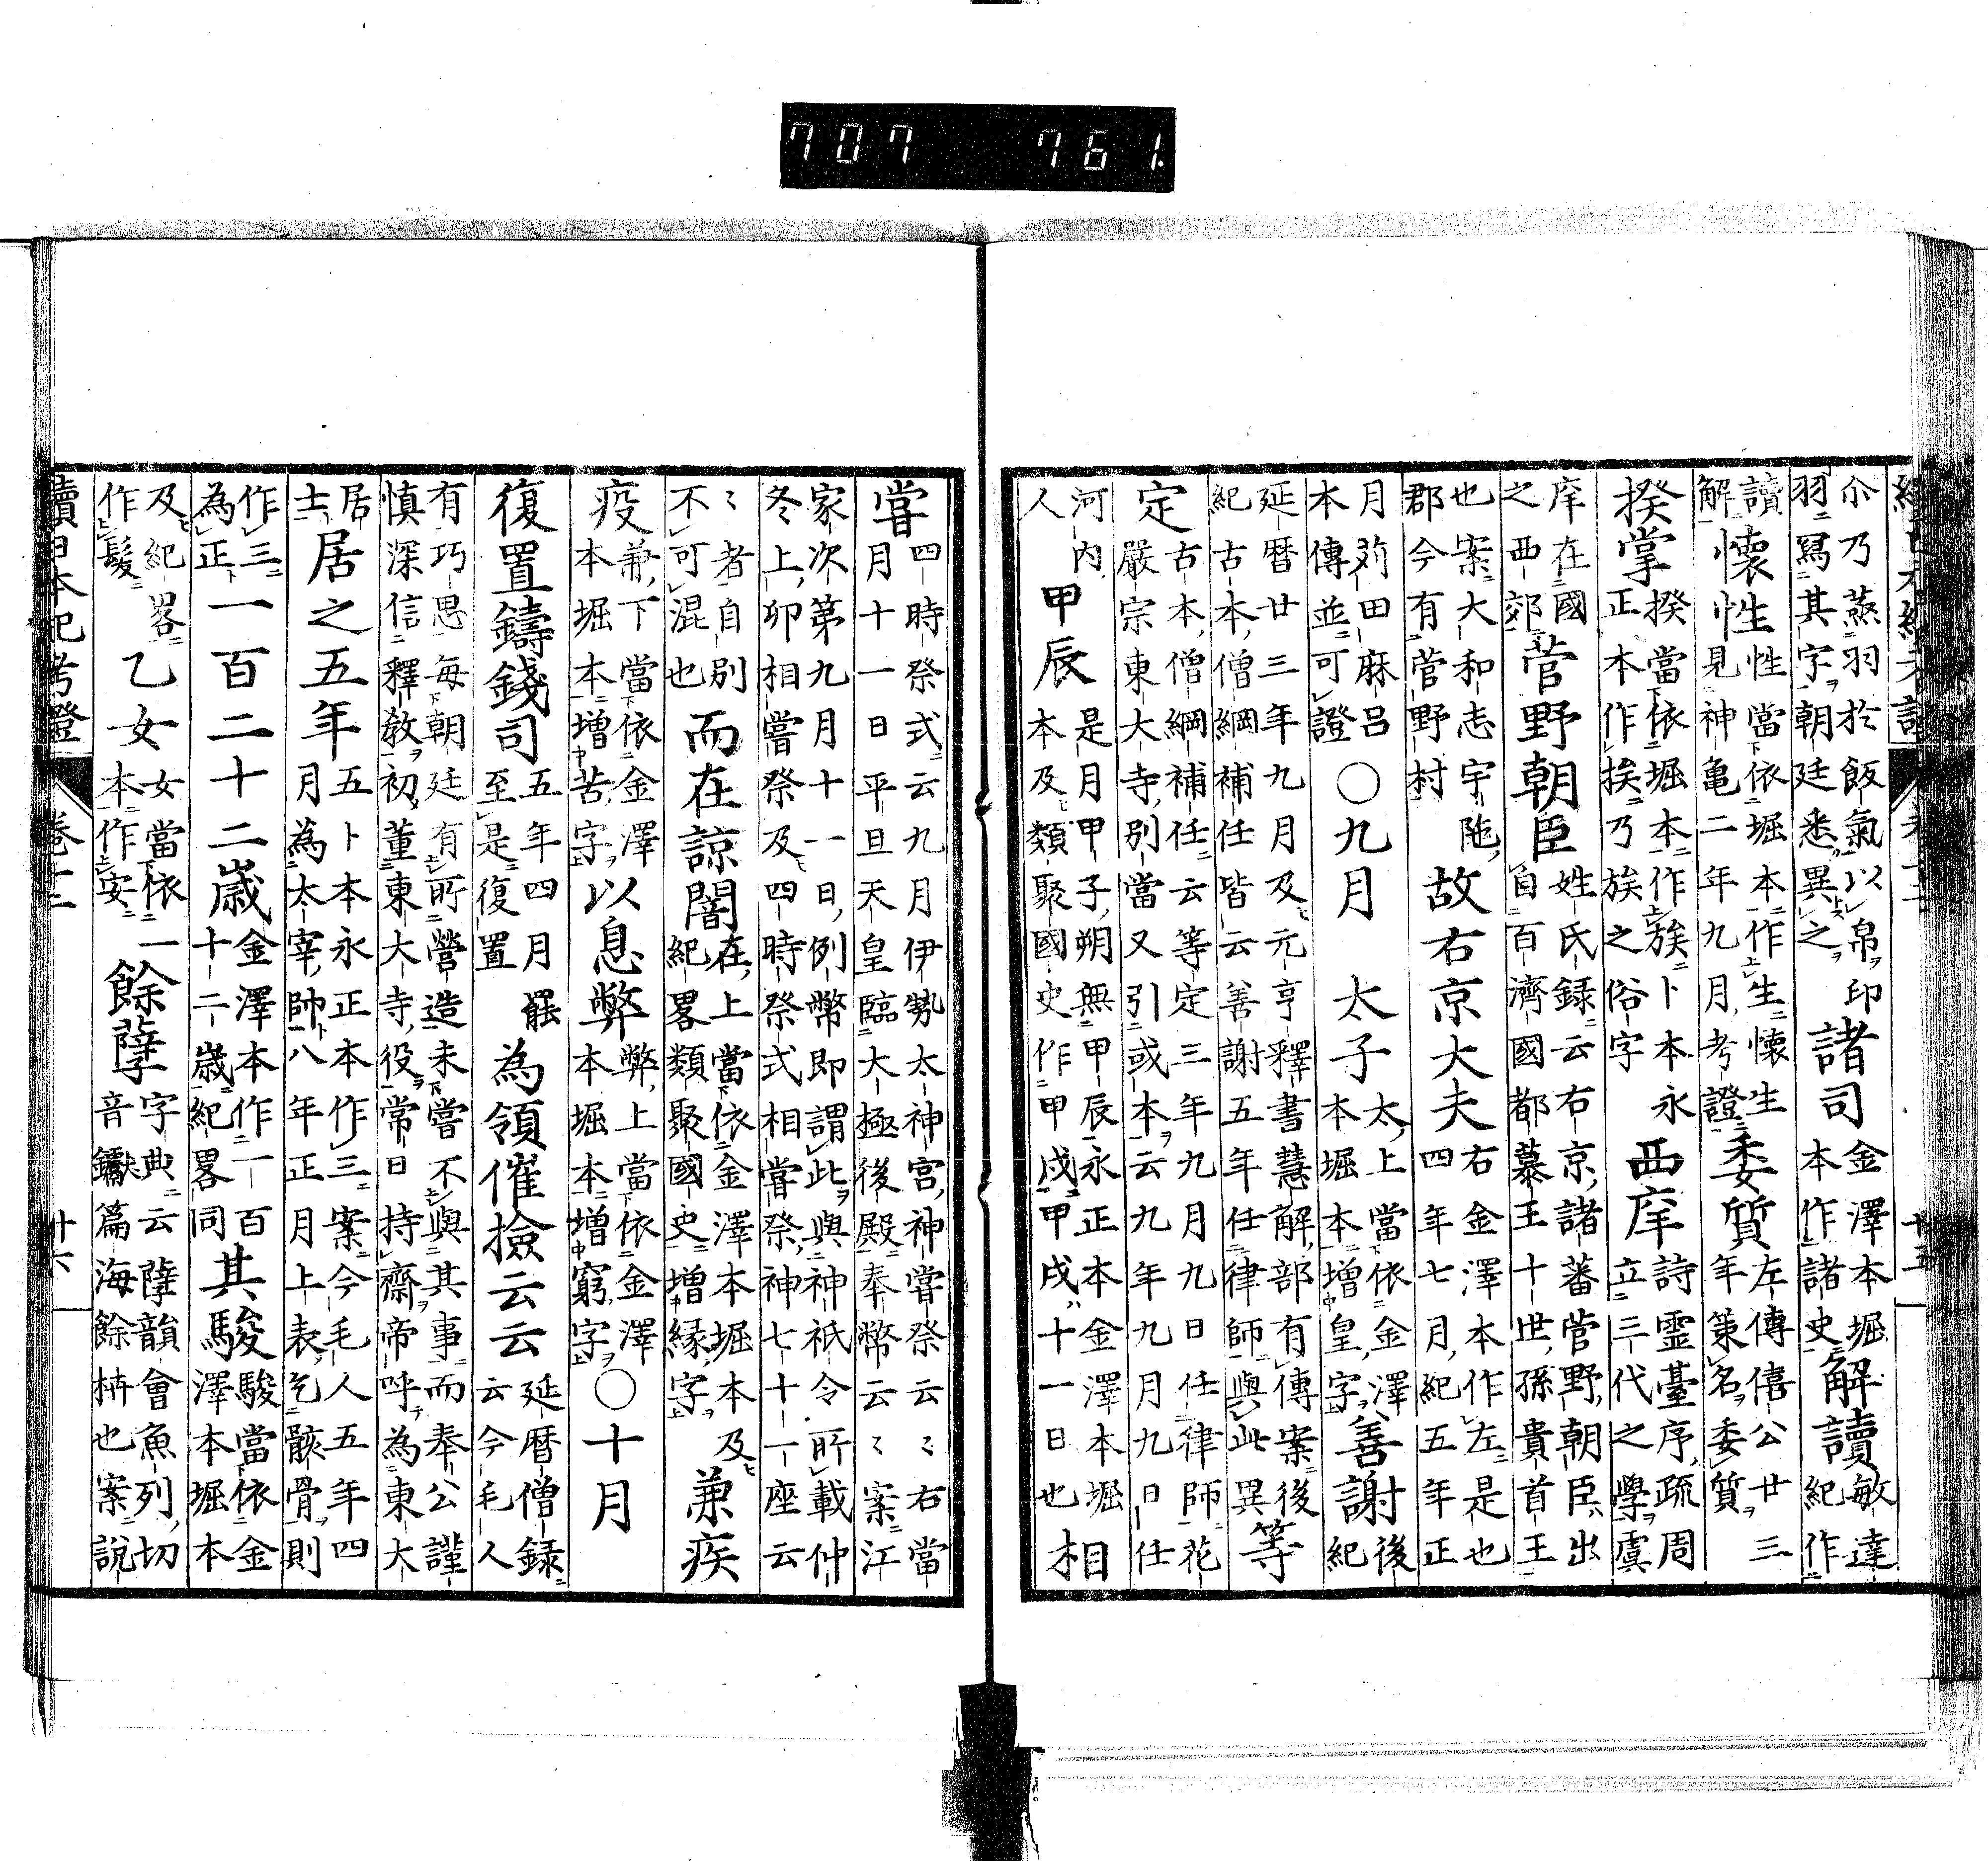 707 761.
尒乃蒸羽於飯氣以帛印
羽寫其字朝廷悉異之
諸司
金澤本堀
本作諸史
解讀
敏達
紀作
讀
解
懷性
性當依堀本作生懷生
見神亀二年九月考證
委質
左傳僖公廿三
年策名委質
揆掌
揆當依堀本作族卜本永
正本作挨乃族之俗字
西庠
詩靈臺序疏周
立三代之學虞
庠在國
之西郊
菅野朝臣
姓氏録云右京諸蕃菅野朝臣出
自百濟國都慕王十世孫貴首王
也案大和志宇陁
郡今有菅野村
故右京大夫
右金澤本作左是也
四年七月紀五年正
月茢田麻呂
本傳並可證
○九月
太子
太上當依金澤
本堀本增皇字
善謝
後
紀
延暦廿三年九月及元亨釋書慧解部有傳案後
紀古本僧綱補任皆云善謝五年任律師與此異
等
定
古本僧綱補任云等定三年九月九日任律師花
嚴宗東大寺別當又引或本云九年九月九日任
河内
人
甲辰
是月甲子朔無甲辰永正本金澤本堀
本及類聚國史作甲戌甲戌十一日也
相
嘗
四時祭式云九月伊勢太神宮神嘗祭云〻右當
月十一日平旦天皇臨大極後殿奉幣云〻案江
家次第九月十一日例幣即謂此與神祇令所載仲
冬上卯相嘗祭及四時祭式相嘗祭神七十一座云
〻者自別
不可混也
而在諒闇
在上當依金澤本堀本及
紀畧類聚國史增縁字
兼疾
疫
兼下當依金澤
本堀本增苦字
以息弊
弊上當依金澤
本堀本增窮字
○十月
復置鑄錢司
五年四月罷
至是復置
為領催撿云云
延暦僧録
云今毛人
有巧思毎朝廷有所營造未嘗不與其事而奉公謹
慎深信釋教初董東大寺役常日持齋帝呼為東大
居
士
居之五年
五卜本永正本作三案今毛人五年四
月為太宰帥八年正月上表乞骸骨則
作三
為正
一百二十二歳
金澤本作一百
十二歳紀畧同
其駿
駿當依金
澤本堀本
及紀畧
作髪
乙女
女當依一
本作安
餘孽
字典云孽韻會魚列切
音钀篇海餘枿也案說
續日本紀考證
卷十二
廿六